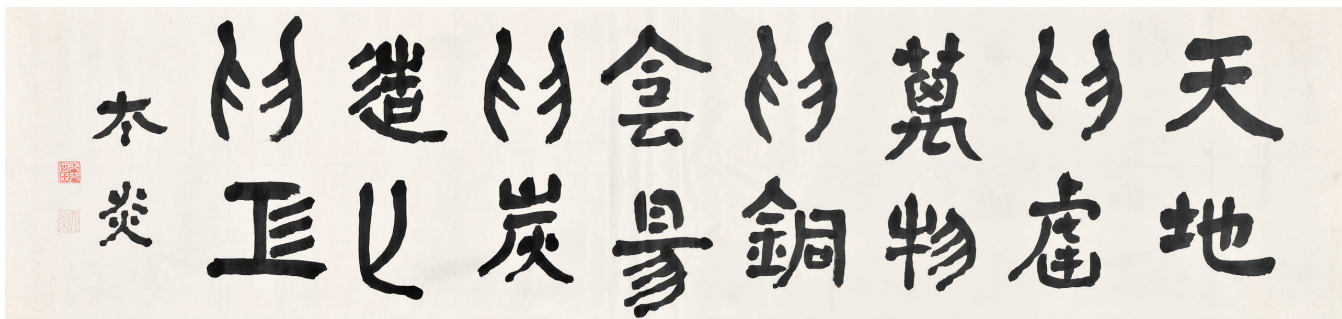 天地
為盧
萬物
為銅
侌昜
為炭
造𠤎
為工
太炎